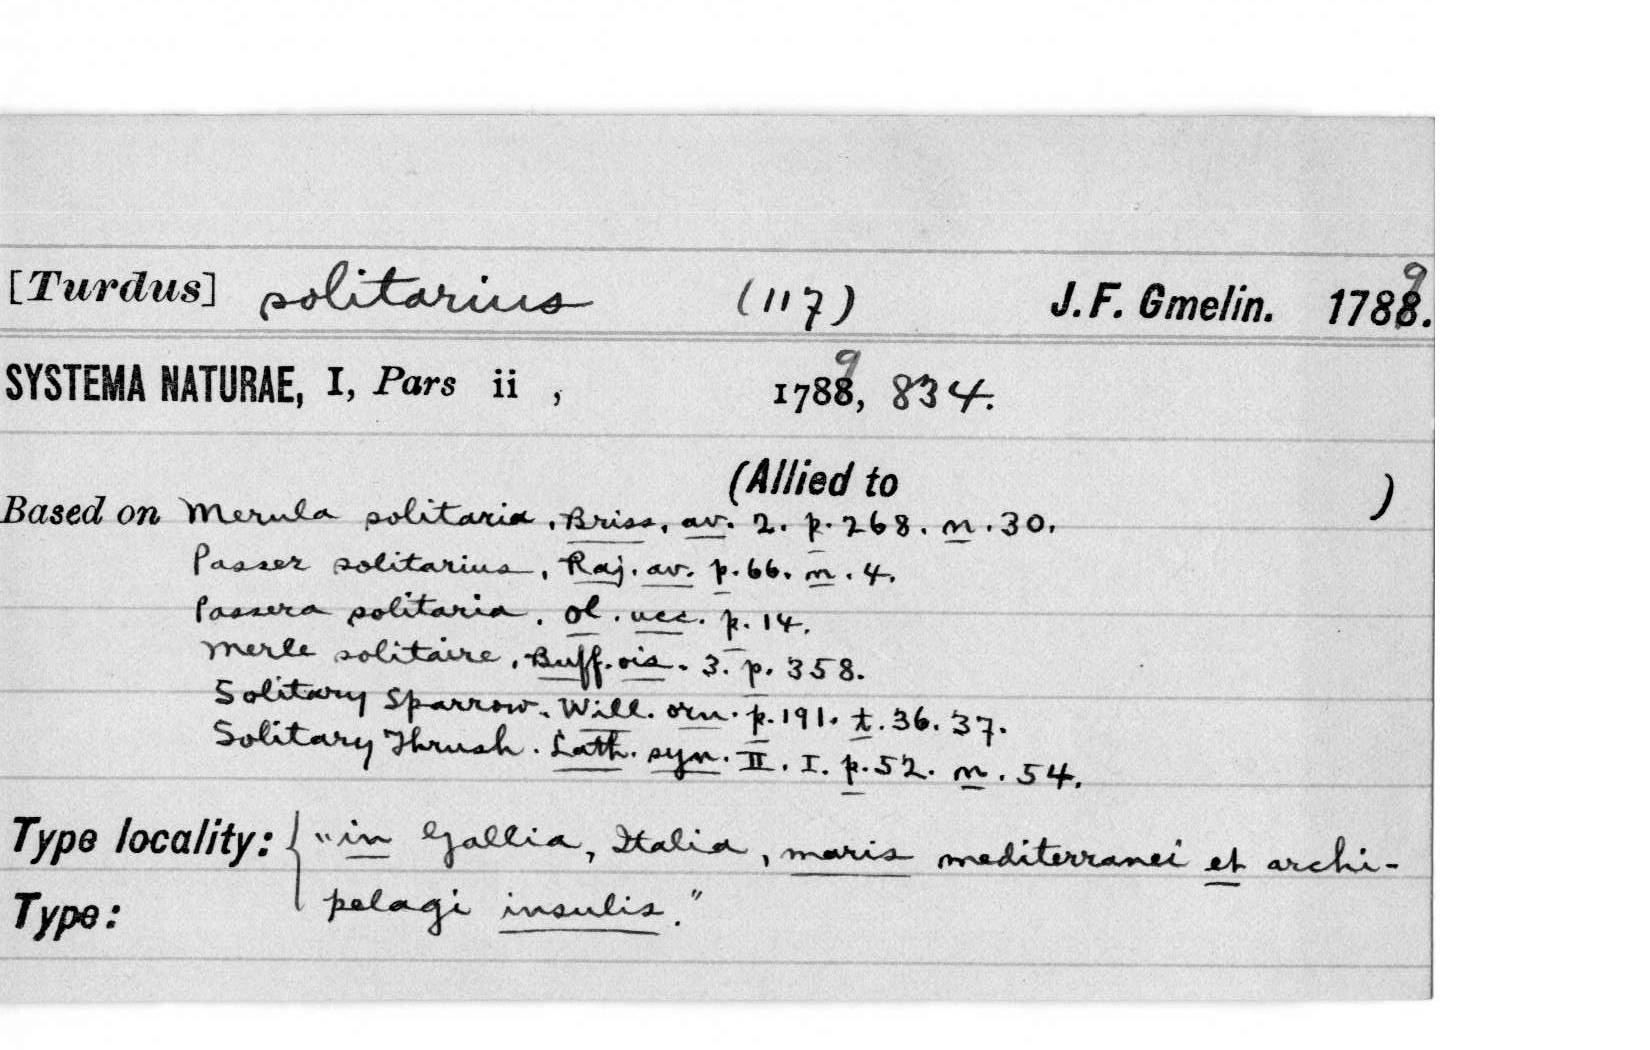 [Turdus] solitarius (117) J. F. Gmelin. 1789.
SYSTEMA NATURAE, I, Pars ii , 1789, 834.
(Allied to )
Based on Merula solitaria, Briss, av. 2. p. 268. n. 30.
Passer solitarius, Raj. av. p. 66. n. 4.
Passera solitaria. Ol. ucc. p. 14.
Merle solitaire, Buff. ois. 3. p. 358.
Solitary Sparrow. Will. orn. p. 191. t. 36. 37.
Solitary Thrush. Lath. syn. II. I. p. 52. n. 54.
Type locality: { "in Gallia, Italia, maris mediterranei et archi-
Type: pelagi insulis."